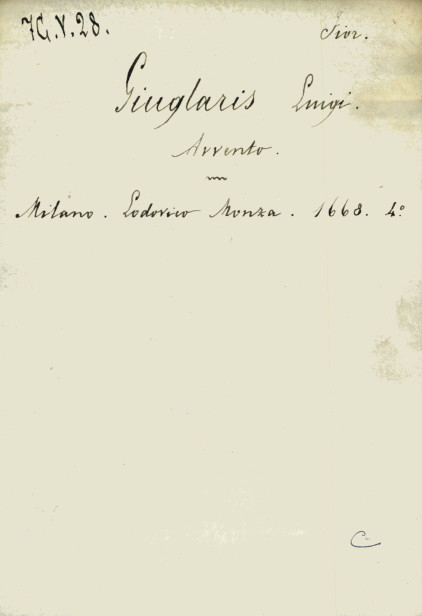 7G.V.28.
Fior.
Giuglaris Luigi.
Avvento.
Milano. Lodovico Monza. 1668. 4º
C